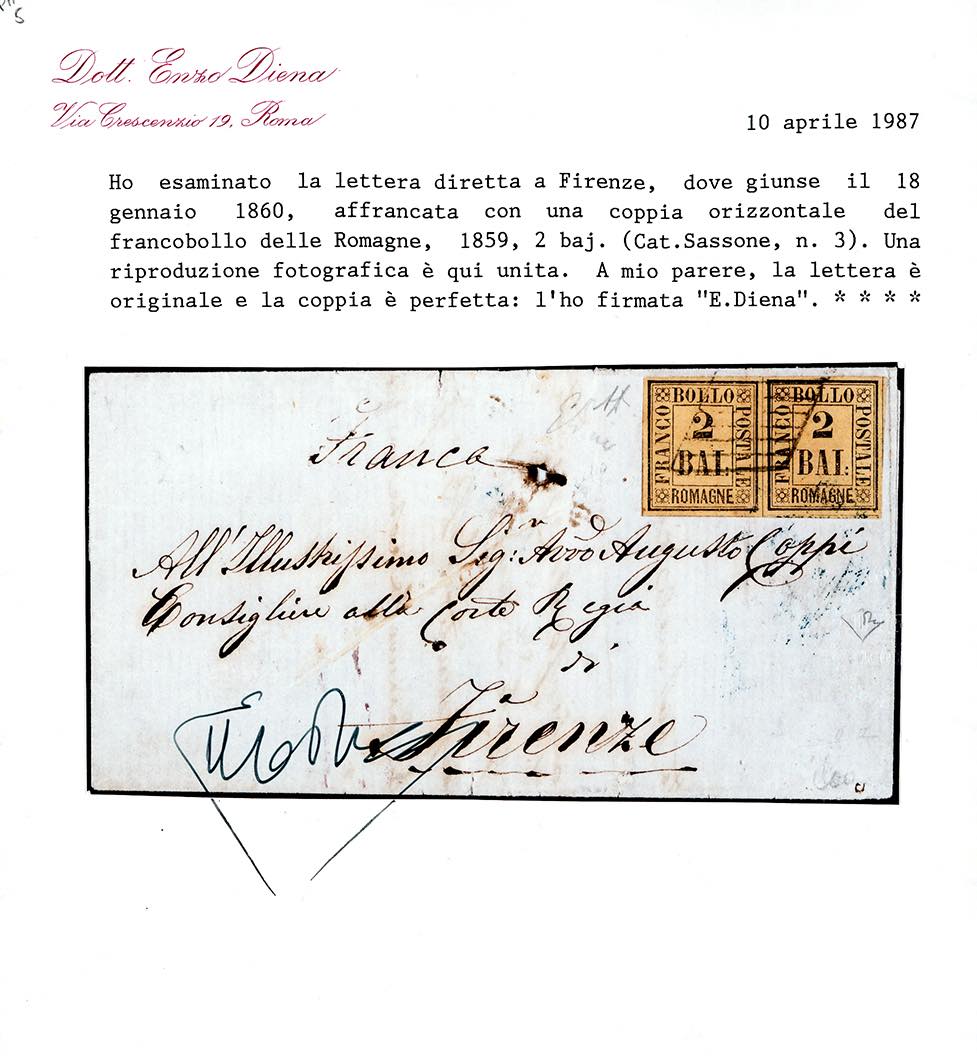 Dott. Enzo Diena
Via Crescenzio 19, Roma
10 aprile 1987
Ho esaminato la lettera diretta a Firenze, dove giunse il 18
gennaio 1860, affrancata con una coppia orizzontale del
francobollo delle Romagne, 1859, 2 baj. (Cat.Sassone, n. 3). Una
riproduzione fotografica è qui unita. A mio parere, la lettera è
originale e la coppia è perfetta: l'ho firmata "E.Diena". * * * *
FRANCO BOLLO POSTALE ROMAGNE
2
BAI:
FRANCO BOLLO POSTALE ROMAGNE
2
BAI:
Franca
All'Illustrissimo Sig:r Avvo Augusto Coppi
Consigliere alla Corte Regia
di
Firenze